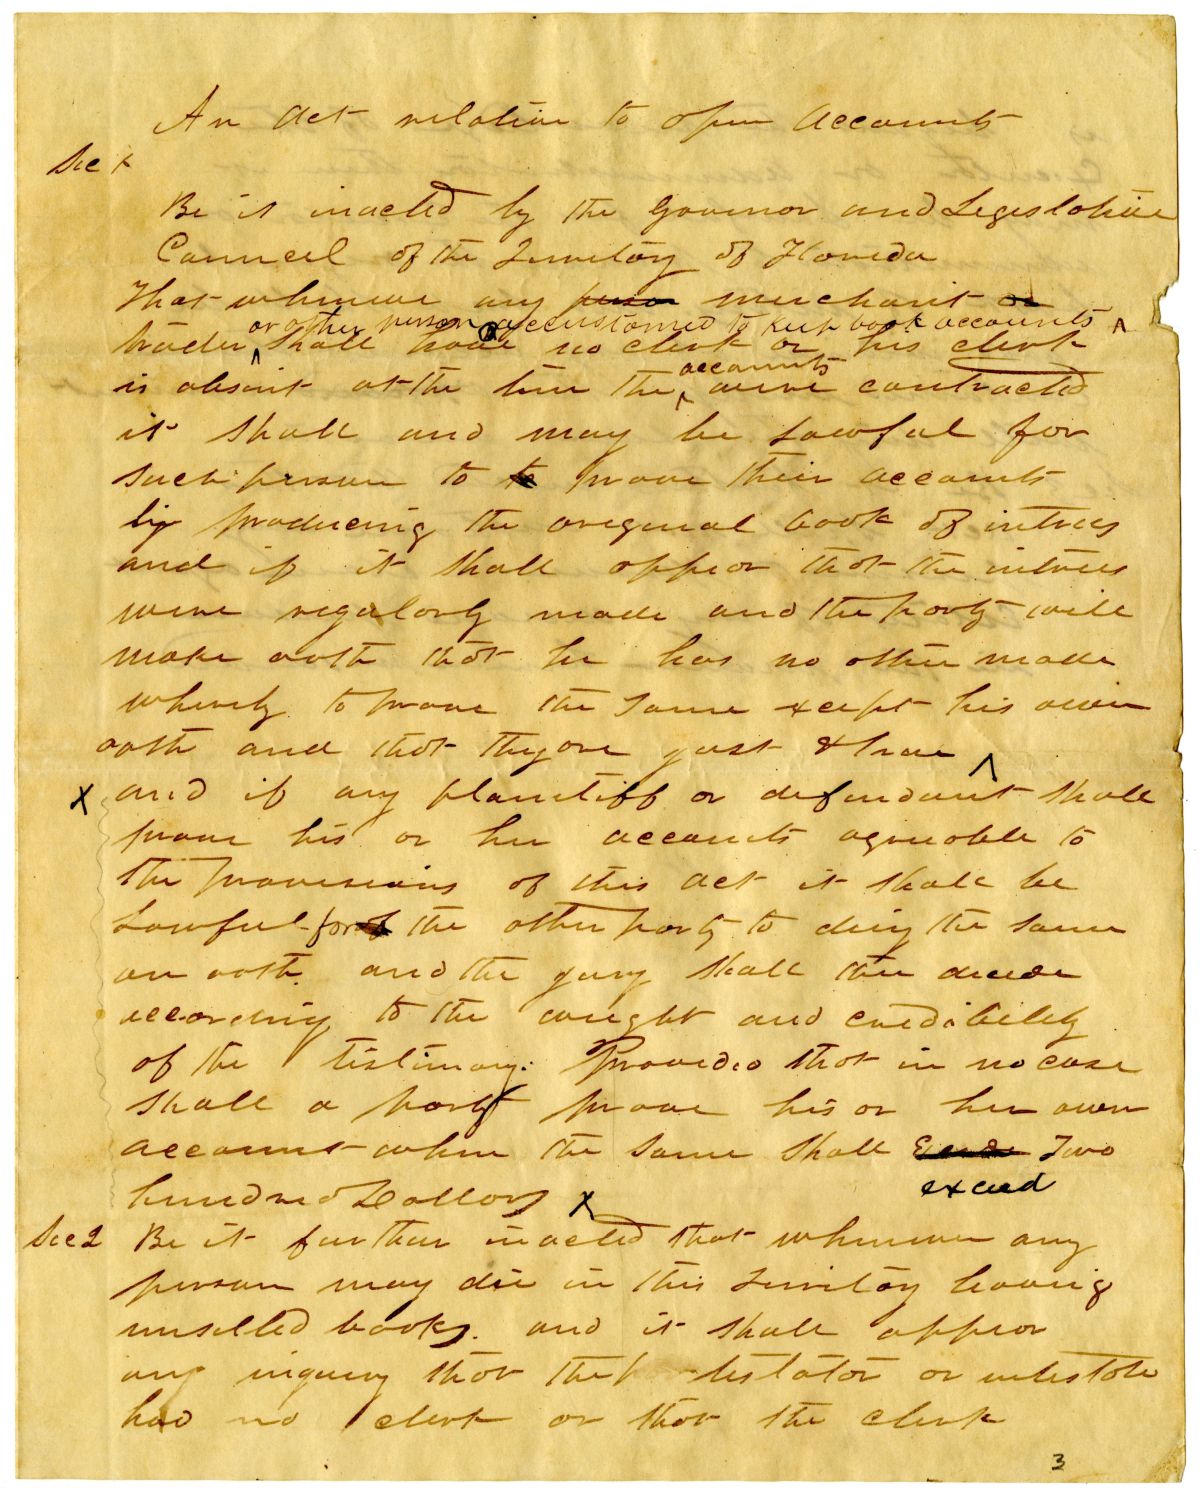 An act relative to open accounts
Sec 1
Be it inacted by the Govornor and Legislative
Council of the Territory of Floreda
That whenever any person merchant or
or other person accustomed to keep book accounts
trader shall have no clerk or his clerk
accounts
is absent at the time the were contracted
it shall and may be Lawful for
such person to to prove their accounts
by producing the oreginal book of intrees
and if it shall appear that the intrees
were regularly made and the party will
make oath that he has no other mode
whereby to prove the same except his own
oath and that they are just & true
x and if any plantiff or defendant shall
prove his or her accounts agreeable to
the provisions of this act it shall be
Lawful for the other party to deny the same
on oath and the jury shall then decide
according to the weight and credibility
of the testimony: Provided that in no case
shall a party prove his or her own
account when the same shall Two
exceed
hundred Dollars x
Sec 2 Be it further inacted that whenever any
person may die in this Territory having
unsettled books. and it shall appear
any inquiry that the testator or intestate
had no clerk or that the clerk
3